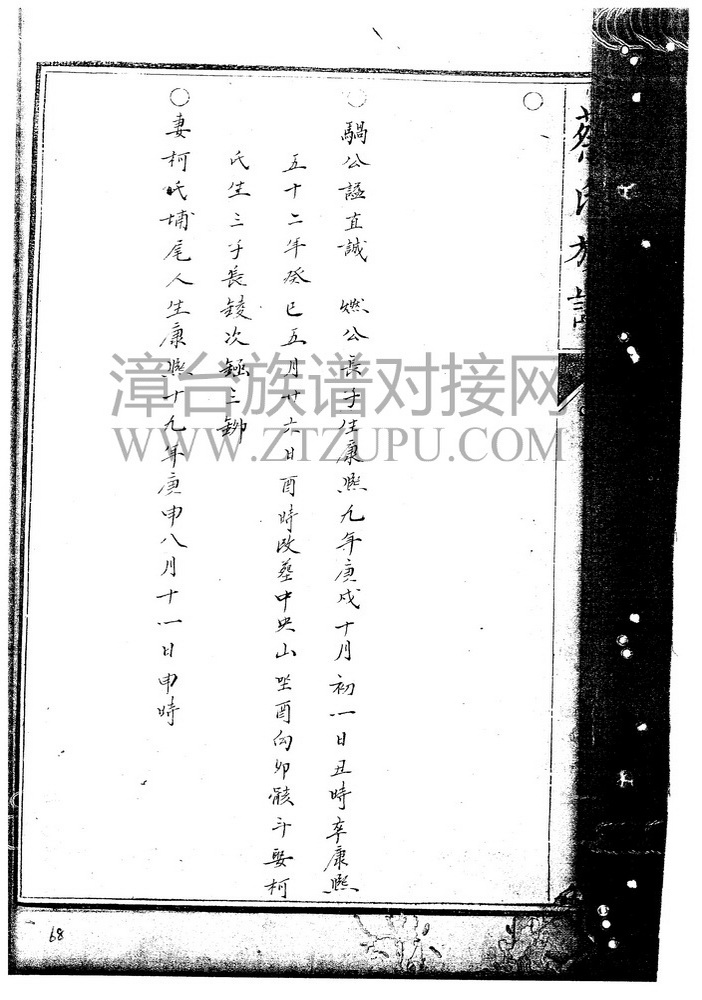 蔡氏族譜
○
○騧公諡直誠 燃公長子生康熙九年庚戌十月初一日丑時卒康熙
五十二年癸巳五月廿六日酉時改葬中央山坐酉向卯骸斗娶柯
氏生三子長錂次鋞三鉚
○妻柯氏埔尾人生康熙十九年庚申八月十一日申時
漳台族谱对接网
WWW.ZTZUPU.COM
68